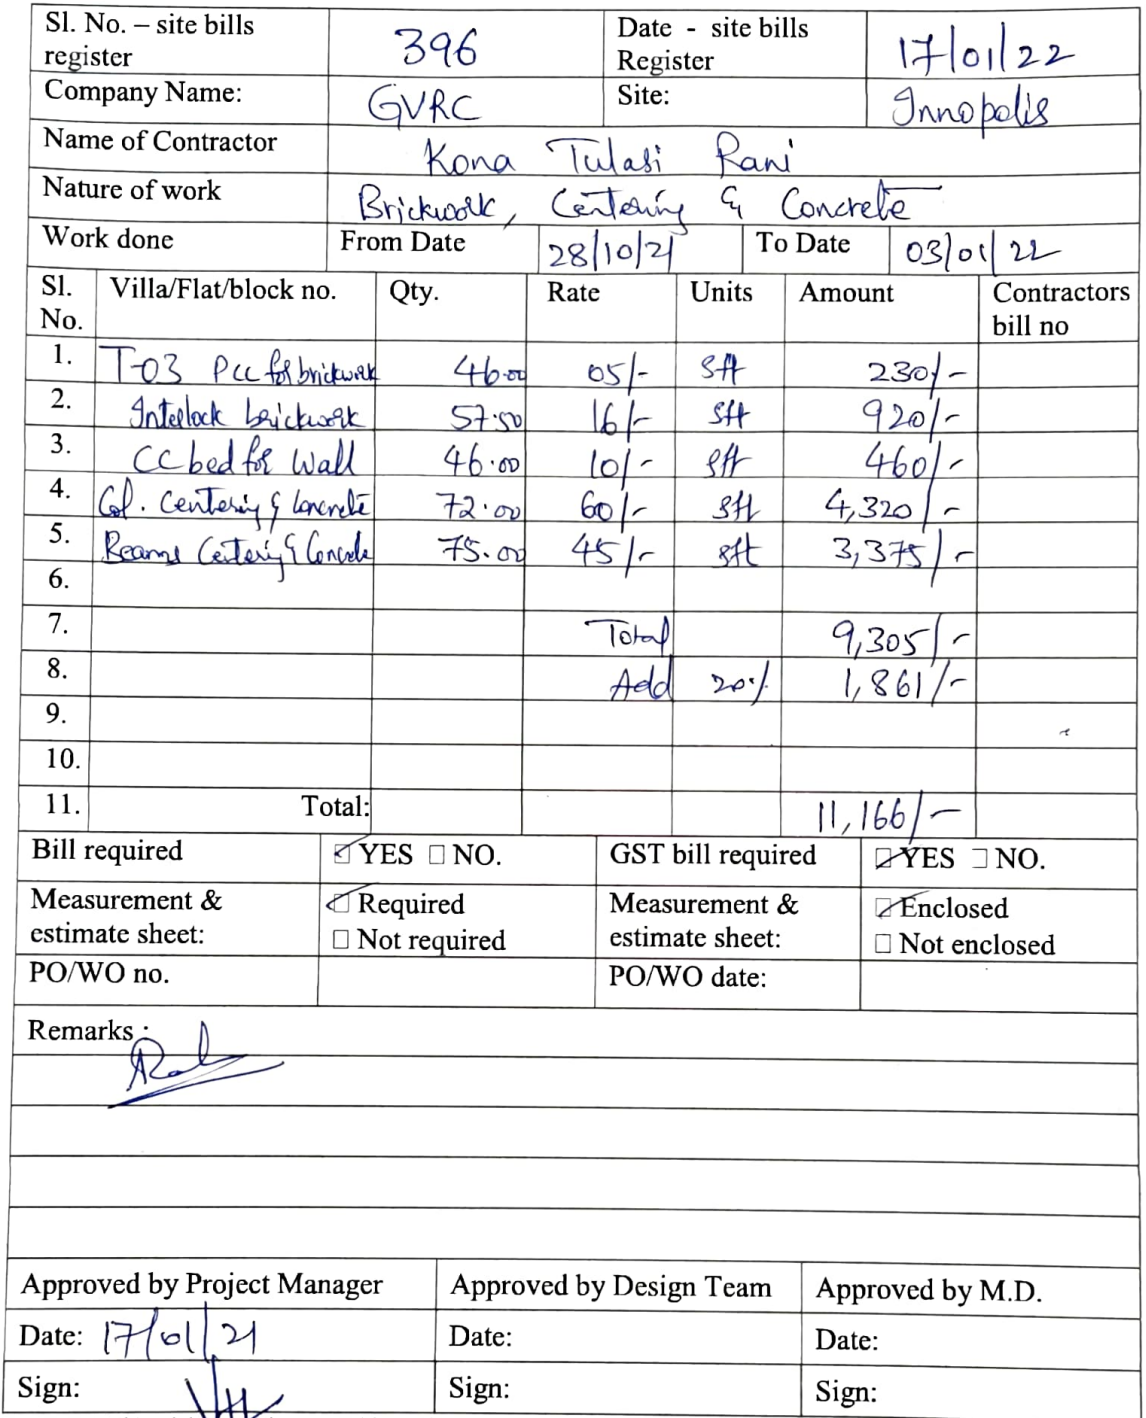 Sl. No. – site bills register 396 Date - site bills Register 17/01/22
Company Name: GVRC Site: Innopolis
Name of Contractor Kona Tulasi Rani
Nature of work Brickwork, Centering & Concrete
Work done From Date 28/10/21 To Date 03/01/22
Sl. No. Villa/Flat/block no. Qty. Rate Units Amount Contractors bill no
1. T-03 PCC for brickwork 46.00 05/- sft 230/-
2. Interlock brickwork 57.50 16/- sft 920/-
3. CC bed for Wall 46.00 10/- sft 460/-
4. Col. Centering & Concrete 72.00 60/- sft 4,320/-
5. Beams Centering & Concrete 75.00 45/- sft 3,375/-
6.
7. Total 9,305/-
8. Add 20% 1,861/-
9.
10.
11. Total: 11,166/-
Bill required ☑ YES □ NO. GST bill required ☑ YES □ NO.
Measurement & estimate sheet: ☑ Required □ Not required Measurement & estimate sheet: ☑ Enclosed □ Not enclosed
PO/WO no. PO/WO date:
Remarks :
Approved by Project Manager Approved by Design Team Approved by M.D.
Date: 17/01/21 Date: Date:
Sign: Sign: Sign: